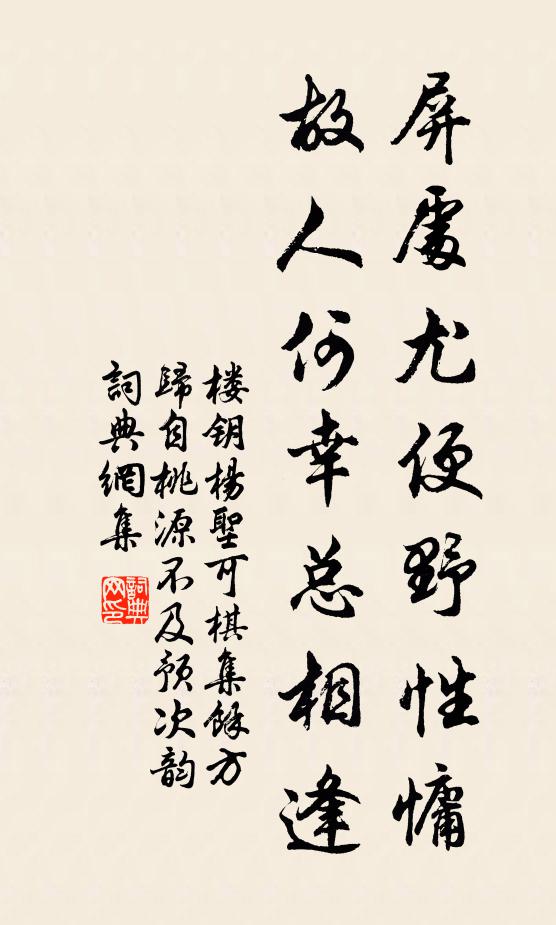 屏處尤便野性慵
故人何幸总相逢
楼钥楊聖可棋集餘方
歸自桃源不及预次韵
詞典網集
詞典網印